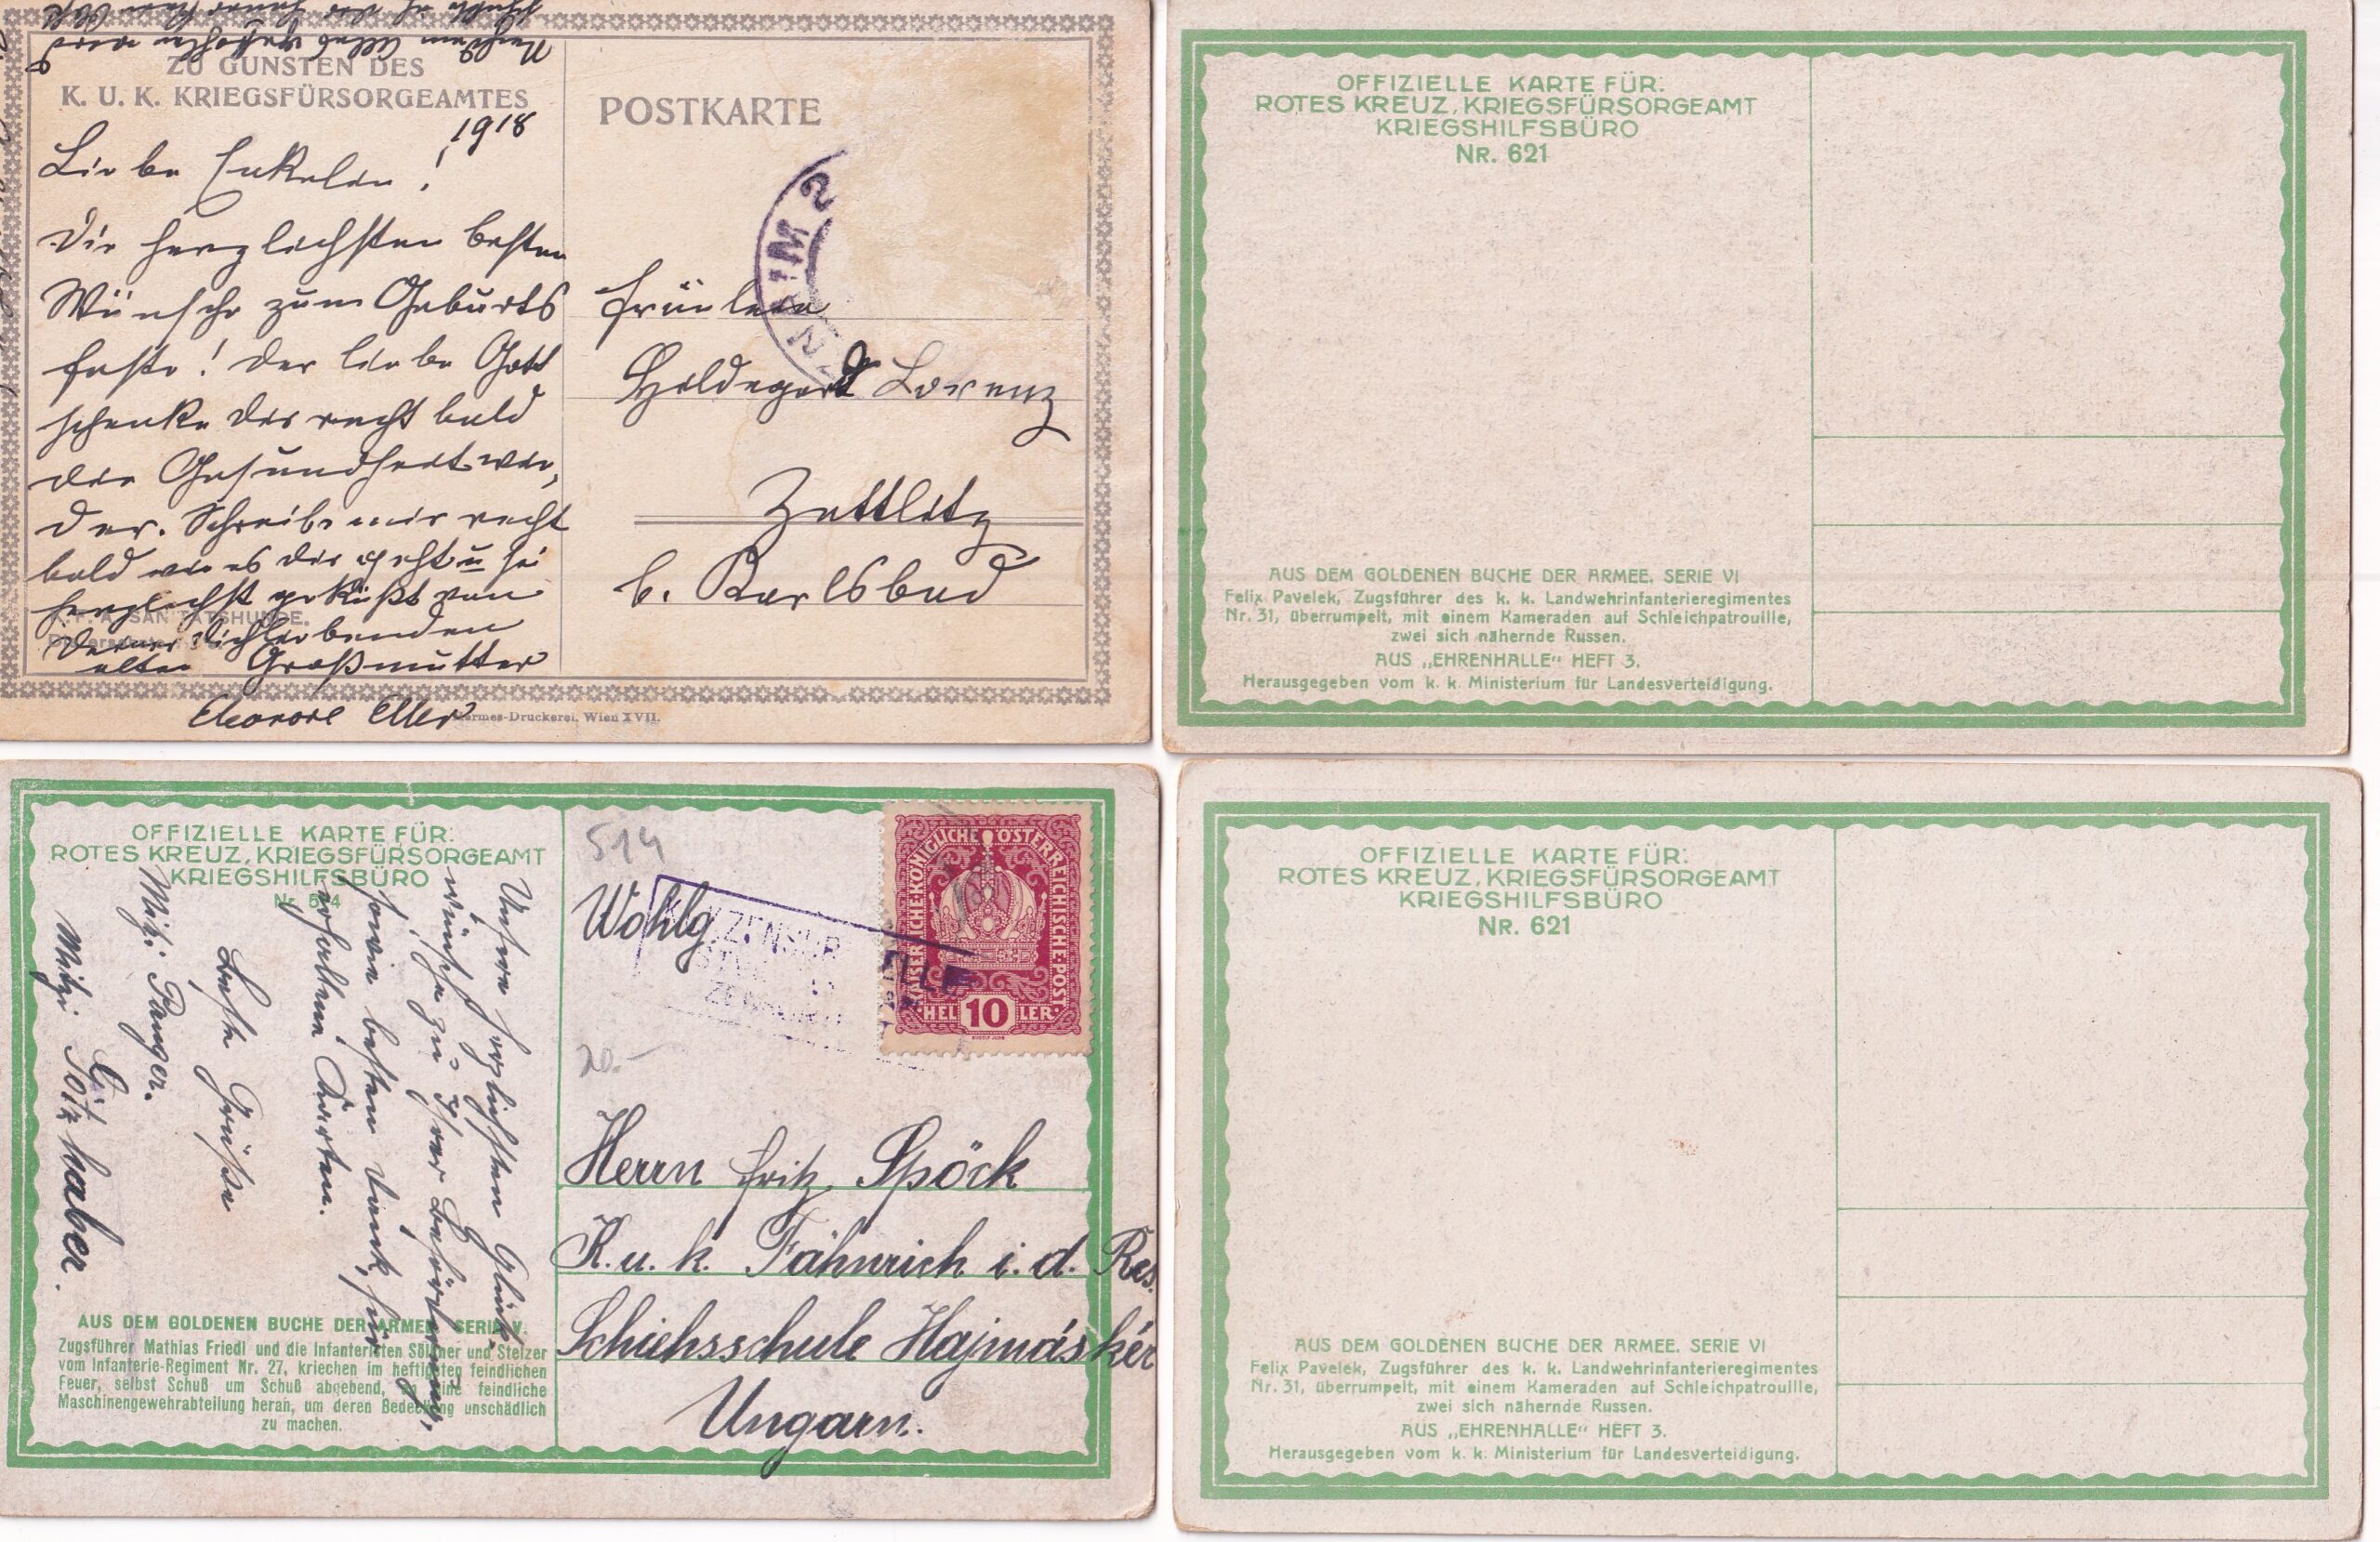 ZU GUNSTEN DES
K. U. K. KRIEGSFÜRSORGEAMTES
1918
Liebe Enkelin!
Die herzlichsten besten
Wünsche zum Geburts
feste! Der liebe Gott
schenke Dir recht bald
die Gesundheit wie,
der. Schreibe mir recht
bald wie es dir geht u sei
herzlichst geküßt von
Deiner Dich liebenden
alten Großmutter
Eleonore Eller
Hermes-Druckerei, Wien XVII.
POSTKARTE
ZNAIM 2
Fräulein
Hildegard Lorenz
Zettlitz
b. Karlsbad
OFFIZIELLE KARTE FÜR:
ROTES KREUZ, KRIEGSFÜRSORGEAMT
KRIEGSHILFSBÜRO
NR. 621
AUS DEM GOLDENEN BUCHE DER ARMEE. SERIE VI
Felix Pavelek, Zugsführer des k. k. Landwehrinfanterieregimentes
Nr. 31, überrumpelt, mit einem Kameraden auf Schleichpatrouille,
zwei sich nähernde Russen.
AUS „EHRENHALLE“ HEFT 3.
Herausgegeben vom k. k. Ministerium für Landesverteidigung.
OFFIZIELLE KARTE FÜR:
ROTES KREUZ, KRIEGSFÜRSORGEAMT
KRIEGSHILFSBÜRO
Unsere herzlichsten Glück,
wünsche zu Ihrer Beförderung,
sowie besten Dank für
erhaltene Karten.
Beste Grüße
Mitzi Panger.
Mitzi Götzhaber.
AUS DEM GOLDENEN BUCHE DER ARMEE. SERIE V.
Zugsführer Mathias Friedl und die Infanteristen Söllner und Stelzer
vom Infanterie-Regiment Nr. 27, kriechen im heftigsten feindlichen
Feuer, selbst Schuß um Schuß abgebend, eine feindliche
Maschinengewehrabteilung heran, um deren Bedeckung unschädlich
zu machen.
514
Wohlg.
ZENSUR
20.-
KAISERLICHE KÖNIGLICHE ÖSTERREICHISCHE POST
10
HELLER
Herrn Fritz Spöck
K. u. k. Fähnrich i. d. Res.
Schiehsschule Hajmáskér
Ungarn.
OFFIZIELLE KARTE FÜR:
ROTES KREUZ, KRIEGSFÜRSORGEAMT
KRIEGSHILFSBÜRO
NR. 621
AUS DEM GOLDENEN BUCHE DER ARMEE. SERIE VI
Felix Pavelek, Zugsführer des k. k. Landwehrinfanterieregimentes
Nr. 31, überrumpelt, mit einem Kameraden auf Schleichpatrouille,
zwei sich nähernde Russen.
AUS „EHRENHALLE“ HEFT 3.
Herausgegeben vom k. k. Ministerium für Landesverteidigung.